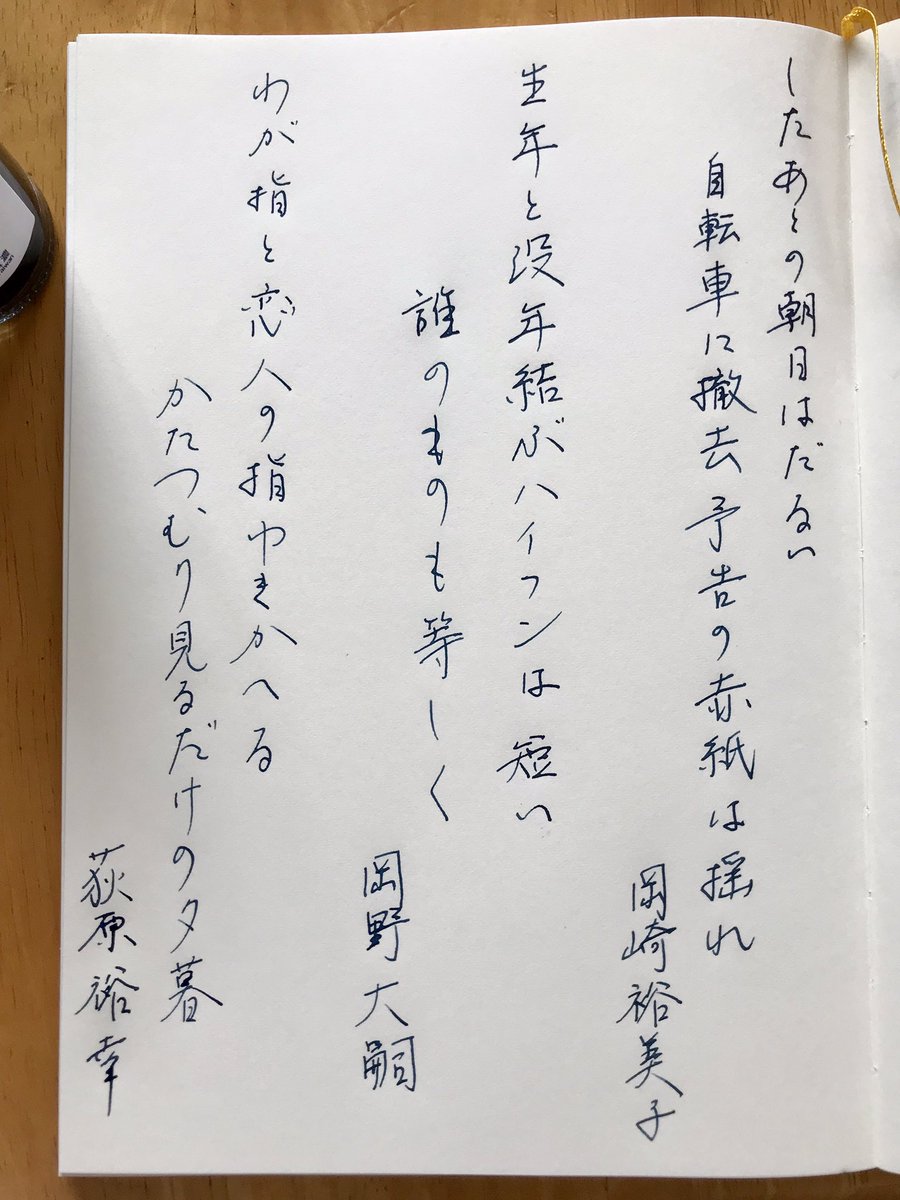 したあとの朝日はだるい
自転車に撤去予告の赤紙は揺れ
岡崎裕美子
生年と没年結ぶハイフンは短い
誰のものも等しく
岡野大嗣
わが指と恋人の指ゆきかへる
かたつむり見るだけの夕暮
荻原裕幸